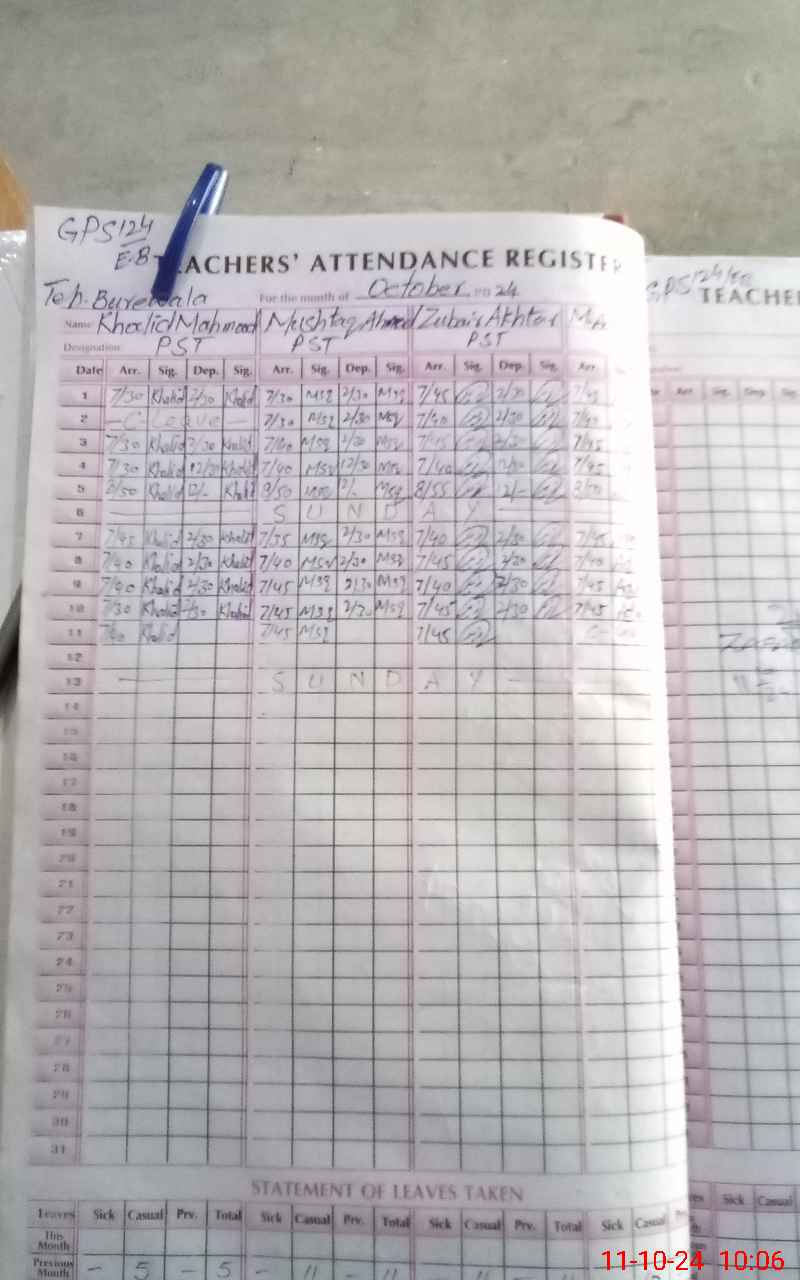 GPS 124
E.B
TEACHERS' ATTENDANCE REGISTER
Teh. Burewala For the month of October 24
Name Khalid Mahmood Mushtaq Ahmed Zubair Akhtar
Designation PST PST PST
Date Arr. Sig. Dep. Sig. Arr. Sig. Dep. Sig. Arr. Sig. Dep. Sig. Arr.
1 7/30 Khalid 2/30 Khalid 7/30 Msq 2/30 Msq 7/45 2/30
2 — C Leave — 7/30 Msq 2/30 Msq 7/40 2/30 7/40
3 7/30 Khalid 2/30 Khalid 7/40 Msq 2/30 Msq 7/45 2/30 7/45
4 7/30 Khalid 12/30 Khalid 7/40 Msq 12/30 Msq 7/40 12/30 7/45
5 8/50 Khalid 12/- Khalid 8/50 Msq 12/- Msq 8/55 12/- 8/50
6 S U N D A Y
7 7/45 Khalid 2/30 Khalid 7/35 Msq 2/30 Msq 7/40 2/30 7/45
8 7/40 Khalid 2/30 Khalid 7/40 Msq 2/30 Msq 7/45 2/30 7/40
9 7/40 Khalid 2/30 Khalid 7/45 Msq 2/30 Msq 7/40 2/30 7/45
10 7/30 Khalid 2/30 Khalid 7/45 Msq 2/30 Msq 7/45 2/30 7/45
11 7/40 Khalid 7/45 Msq 7/45
12
13 S U N D A Y
14
15
16
17
18
19
20
21
22
23
24
25
26
27
28
29
30
31
STATEMENT OF LEAVES TAKEN
Leaves Sick Casual Prv. Total Sick Casual Prv. Total Sick Casual Prv. Total Sick Casual
This Month
Previous Month - 5 - 5
GPS 124/EB
TEACHE
Arr. Sig. Dep. Sig.
Sick Casual
11-10-24 10:06